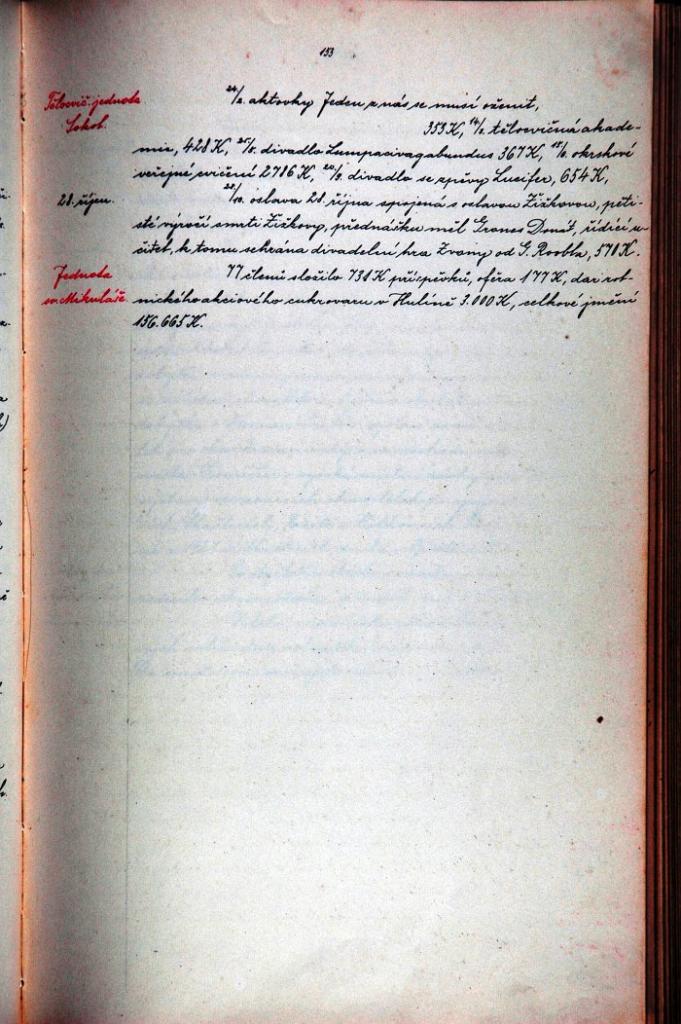 153
Tělocvič. jednota
Sokol.
24/2. aktovky Jeden z nás se musí oženit,
353 K, 14/4. tělocvičná akade-
mie, 428 K, 25/5. divadlo Lumpacivagabundus 367 K, okrskové
veřejné cvičení 2786 K, divadlo se zpěvy Lucifer, 654 K,
28. říjen.
28/10. oslava 28. října spojená s oslavou Žižkovou, pěti-
sté výročí smrti Žižkovy, přednášku měl Donát, řídící u-
čitel, k tomu sehrána divadelní hra Zvony od G. Rooba, 570 K.
Jednota
sv. Mikuláše
77 členů složilo 738 K příspěvků, oféra 177 K, dar rol-
nického akciového cukrovaru v Hulíně 3.000 K, celkové jmění
156.665 K.